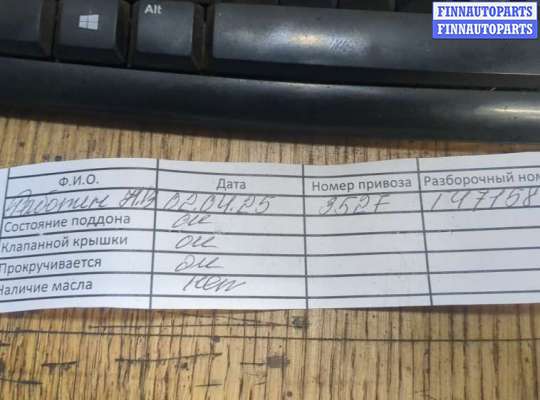 FINNAUTOPARTS
FINNAUTOPARTS
Alt
Ф.И.О. Дата Номер привоза Разборочный ном
02.04.25 3527 147158
Состояние поддона ок
Клапанной крышки ок
Прокручивается ок
Наличие масла нет